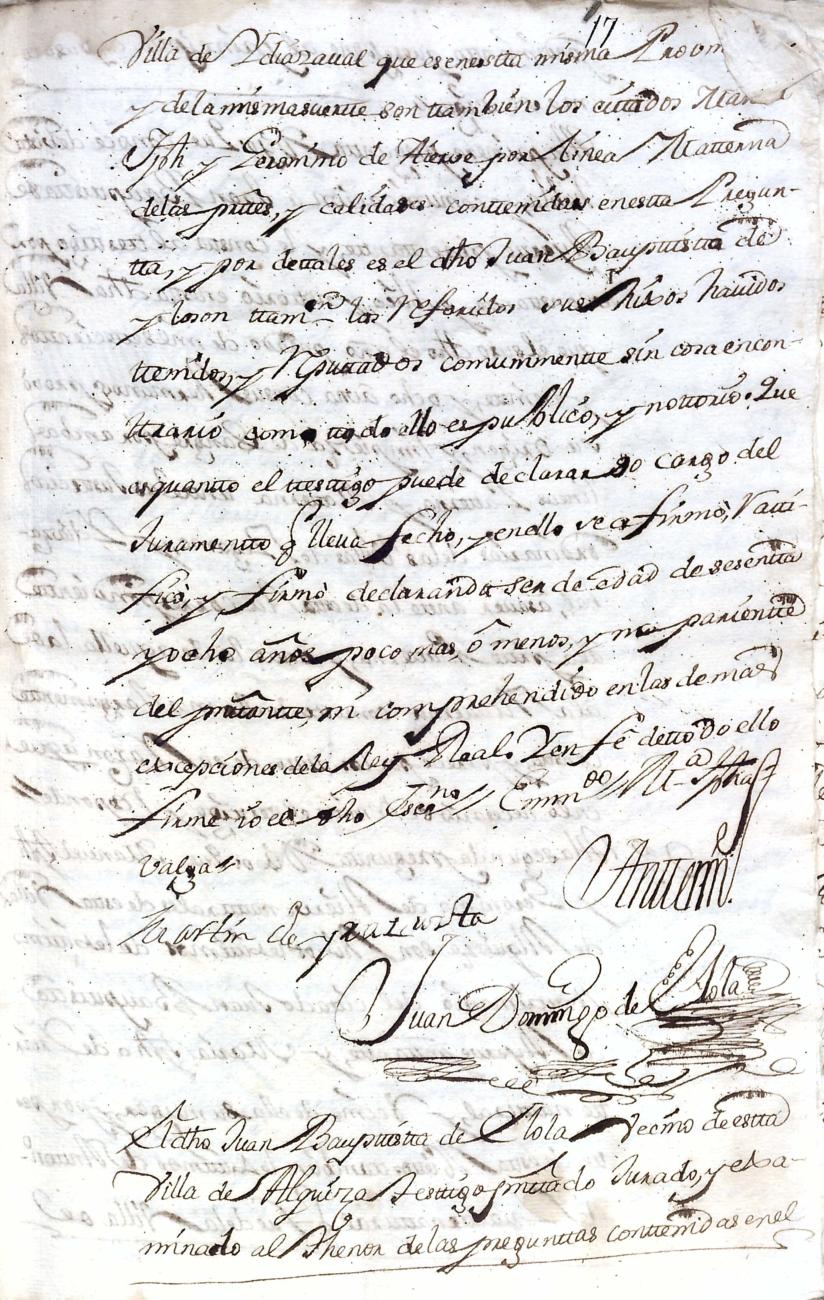 17
Villa de Ydiazaual que es en estta misma Prouin
y de la misma suertte son ttambien los cittados Man
Jph, y Geronimo de por linea Matterna
de las parttes, y calidades conttenidas en estta Pregun-
tta, y por de ttales es el dho Juan Baupttistta de
y lo son ttamn los Referidos sus hixos hauidos
ttenidos, y Reputtados comunmentte sin cosa en con-
ttrario como ttodo ello es publico, y nottorio. Que
es quantto el ttesttigo puede declarar so cargo del
Juramentto q lleua fecho, y en ello se afirmó, Ratti-
ficó, y firmó declarando ser de edad de sesentta
y ocho años poco mas, ó menos, y no parientte
del prettte, ni comprehendido en las demas
excepciones de la Ley Real. Y en feé de ttodo ello
firmé io el dho Escrno // Emmdo // Mª Jpha //
Valga //
Anttemi
Martin de yrazusta
Juan Domingo de Elola
El dho Juan Baupttistta de Elola Vecino de estta
Villa de Alquiza ttesttigo presenttado Jurado, y exa-
minado al Thenor de las pregunttas conttenidas en el